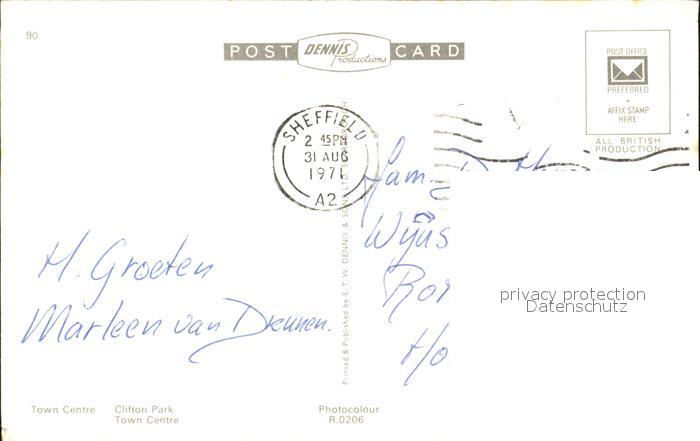 90
POST DENNIS Productions CARD
POST OFFICE
PREFERRED
AFFIX STAMP
HERE
ALL BRITISH
PRODUCTION
SHEFFIELD
2 45PM
31 AUG
1971
A2
Fam.
H. Groeten
Marleen van Drunen.
privacy protection
Datenschutz
Printed & Published by E.T.W. DENNIS & SONS LTD.
Town Centre Clifton Park
Town Centre
Photocolour
R.0206